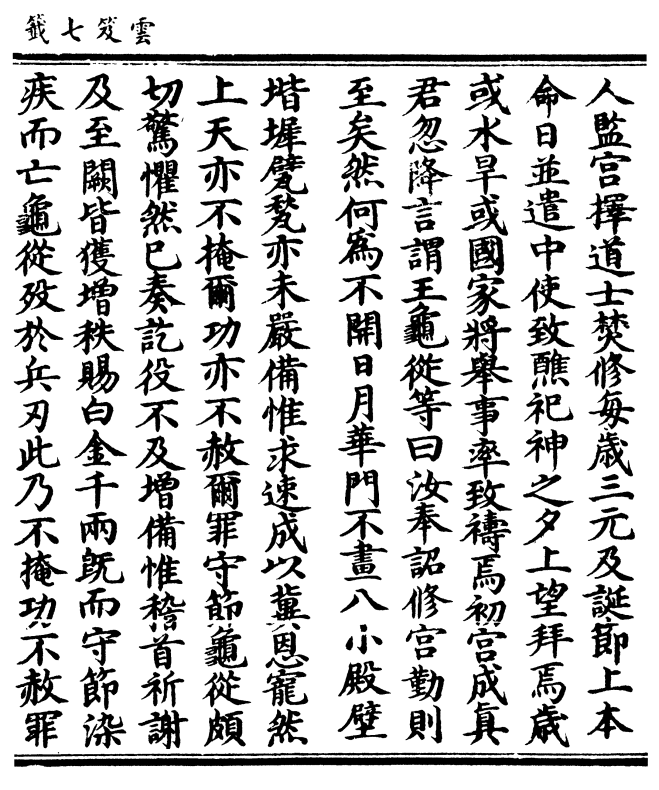 雲笈七籤
人監宮擇道士焚修每歲三元及誕節上本
命日並遣中使致醮祀神之夕上望拜焉歲
或水旱或國家將舉事率致禱焉初宮成真
君忽降言謂王龜從等曰汝奉詔修宮勤則
至矣然何爲不開日月華門不畫八小殿壁
堦墀甓甃亦未嚴備惟求速成以冀恩寵然
上天亦不掩爾功亦不赦爾罪守節龜從頗
切驚懼然已奏訖役不及增備惟稽首祈謝
及至闕皆獲增秩賜白金千兩旣而守節染
疾而亡龜從歿於兵刃此乃不掩功不赦罪